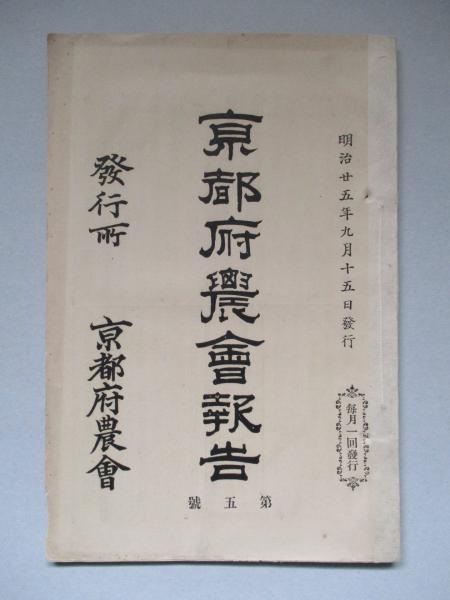 明治廿五年九月十五日發行
每月一回發行
京都府農會報告
第五號
發行所 京都府農會